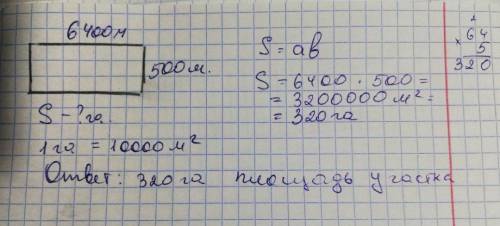 6400м
500м.
S - ? га.
1 га = 10000 м²
S = ab
S = 6400 · 500 =
= 3200000 м² =
= 320 га
2
64
× 5
320
Ответ: 320 га площадь участка